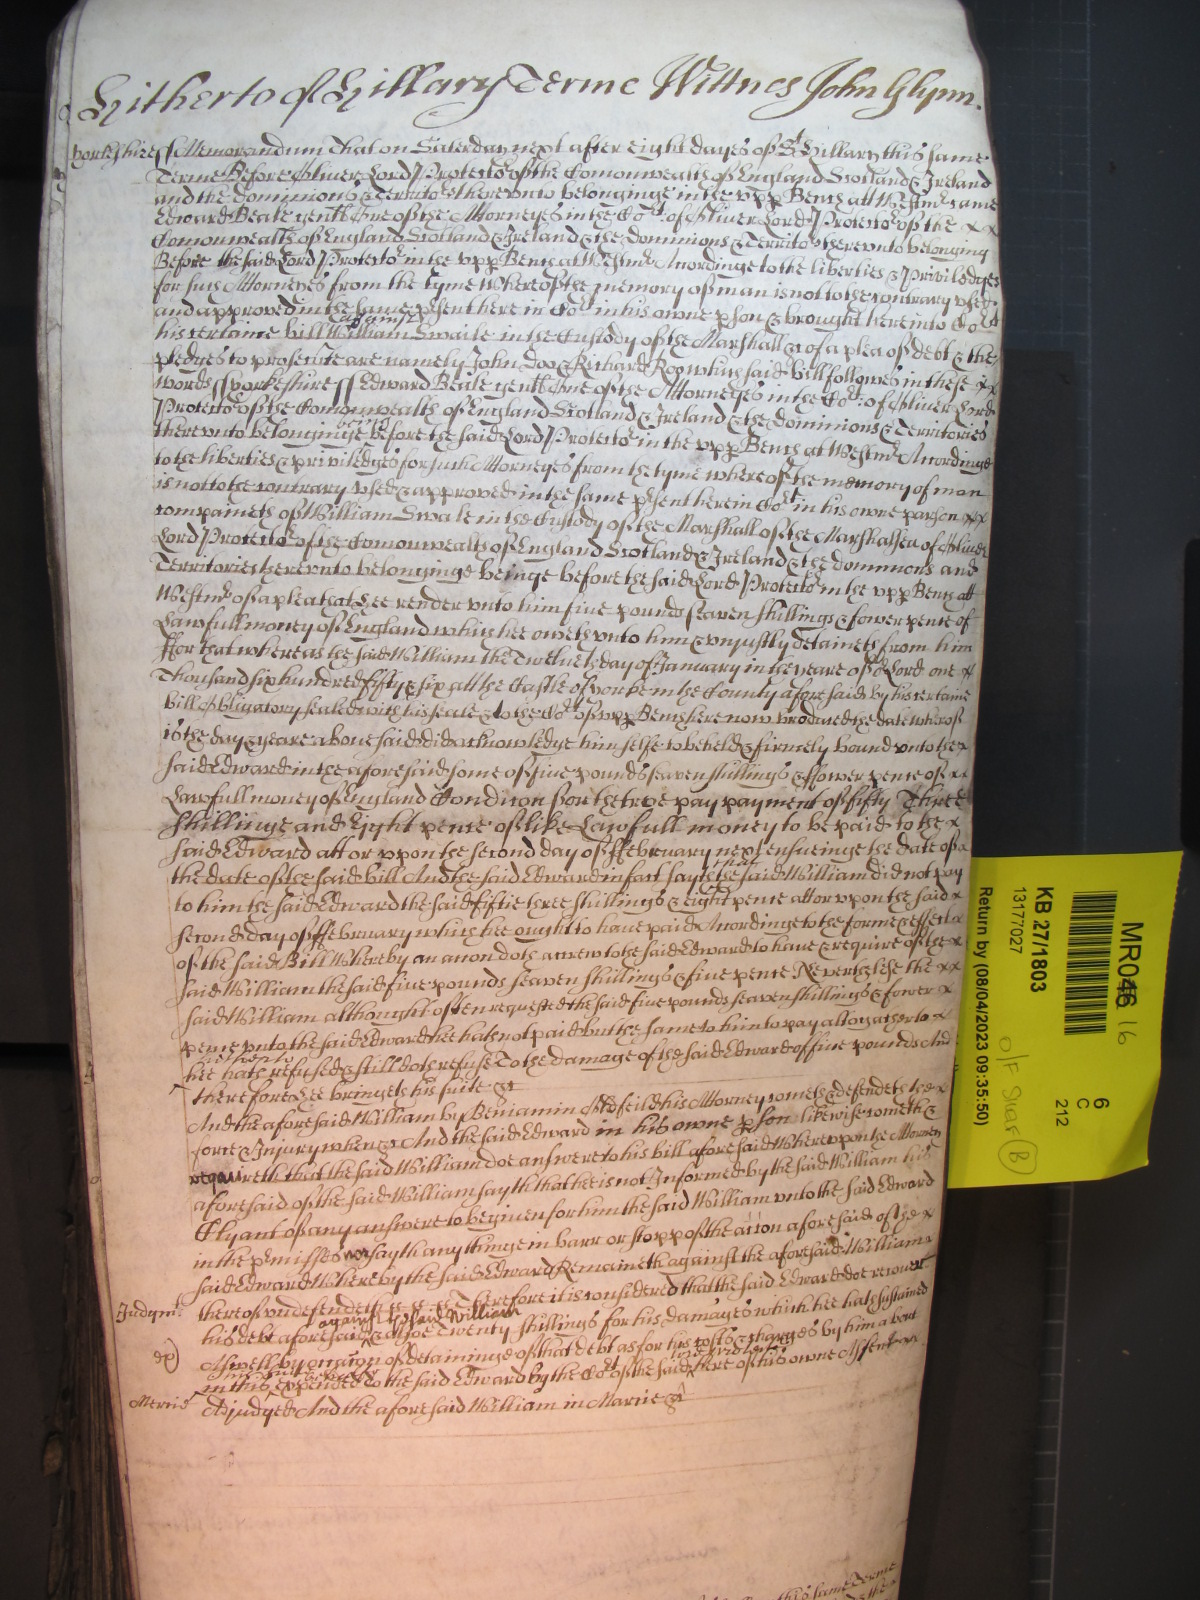 Hitherto of Hillary Terme Wittnes John Glynn.
Yorkeshire ss Memorandum That on Saterday next after eight dayes of St Hillary this same
Terme Before Oliver Lord Protector of the Comonwealth of England Scotland & Ireland
and the dominions & Territories thereunto belonginge in the upp Bench att Westmr came
Edward Beale gent One of the Attorneyes in the Cort: of Oliver Lord Protector of the x x
Comonwealth of England Scotland & Ireland & the dominions & Territories thereunto belonging
Before the said Lord Protector in the upp Bench at Westmr Accordinge to the liberties & Priviledges
for such Attorneyes from the tyme whereof the memory of man is not to the contrary used
and approved in the same psent here in Cort in his owne pson & brought here into Cort
his certaine bill against William Swaile in the Custody of the Marshall &c of a plea of debt & the
pledges to prosecute are namely John Doo & Richard Roo which said bill followes in these x x
words ss yorkeshire ss Edward Beale gent One of the Attorneyes in the Cort: of Oliver Lord
Protector of the Comonwealth of England Scotland & Ireland & the Dominions & Territories
thereunto belonginge before the said Lord Protector in the upp Bench at Westmr Accordinge
to the liberties & priviledges for such Attorneyes from the tyme whereof the memory of man
is not to the contrary used & approved in the same psent here in Cort in his owne parson x x
complaineth of William Swale in the Custody of the Marshall of the Marshalsea of Oliver
Lord Protector of the Comonwealth of England Scotland & Ireland & the dominions and
Territories thereunto belonginge beinge before the said Lord Protector in the upp Bench att
Westmr of a plea that hee render unto him five pounds seaven shillings & fower pence of
Lawfull money of England which hee oweth unto him & unjustly detaineth from him
ffor that whereas the said William the Twelveth day of January in the yeare of or Lord one x
Thousand six hundred fifty & six att the Castle of yorke in the County aforesaid by his certaine
bill Obligatory sealed with his seale & to the Cort of upp Bench here now produced the date whereof
is the day & yeare above said did acknowledge himselfe to be held & firmely bound unto the x
said Edward in the aforesaid some of five pounds seaven shillings & ffower pence of x x
Lawfull money of England Condicon for the true pay payment of fifty Three
Shillings and Eight pence of like Lawfull money to be paid to the x
said Edward att or uppon the second day of ffebruary next ensueinge the date of x
the date of the said bill And the said Edward in fact sayth that the said William did not pay
to him the said Edward the said fiftie three shillings & eight pence att or uppon the said x
second day of ffebruary which hee ought to have paid Accordinge to the forme & effect x
of the said Bill Whereby an accon doth accrew to the said Edward to have & require of the x
said William the said five pounds seaven shillings & five pence Neverthelesse the x x
said William althought often requested the said five pounds seaven shillings & fower x
pence unto the said Edward hee hath not paid but the same to him to pay altogather to x
hee hath refused & still doth refuse To the damage of the said Edward of five pounds And
therefore hee bringeth his suite &c
And the aforesaid William by Benjamin his Attorney cometh & defendeth the x
force & Injury when &c And the said Edward in his owne pson likewise cometh &
requireth that the said William doe answere to his bill aforesaid Whereuppon the Attorney
aforesaid of the said William sayth that hee is not Informed by the said William his
Clyant of any answere to be given for him the said William unto the said Edward
in the pmisses nor sayth any thinge in barr or stopp of the accon aforesaid of the x
said Edward Whereby the said Edward Remaineth against the aforesaid William
Judgmt: thereof undefended &c Therefore it is considered that the said Edward doe recover
against the said William
his debt aforesaid & alsoe Twenty shillings for his damages which hee hath sustained
Aswell by occacon of detaininge of that debt as for his costs & charges by him about
expended to the said Edward by the Cort of the said here of his owne Assent
Mercie Adjudged And the aforesaid William in Mercie &c
MR046 16
KB 27/1803
13177027
Return by (08/04/2023 09:35:50)
6
C
212
O/F Swar B